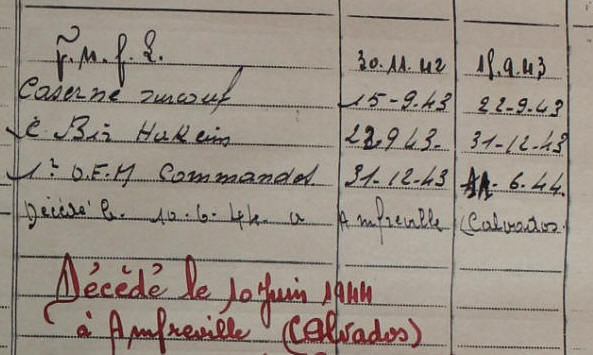 F.N.F.L. 30.11.42 15.9.43
Caserne Surcouf 15-9.43 22-9.43
C Bir Hakeim 22.9.43- 31-12-43
1° B.F.M Commandos 31.12.43 6.44.
Décédé le 10.6.44 a Amfreville (Calvados.
Décédé le 10 Juin 1944
à Amfreville (Calvados)